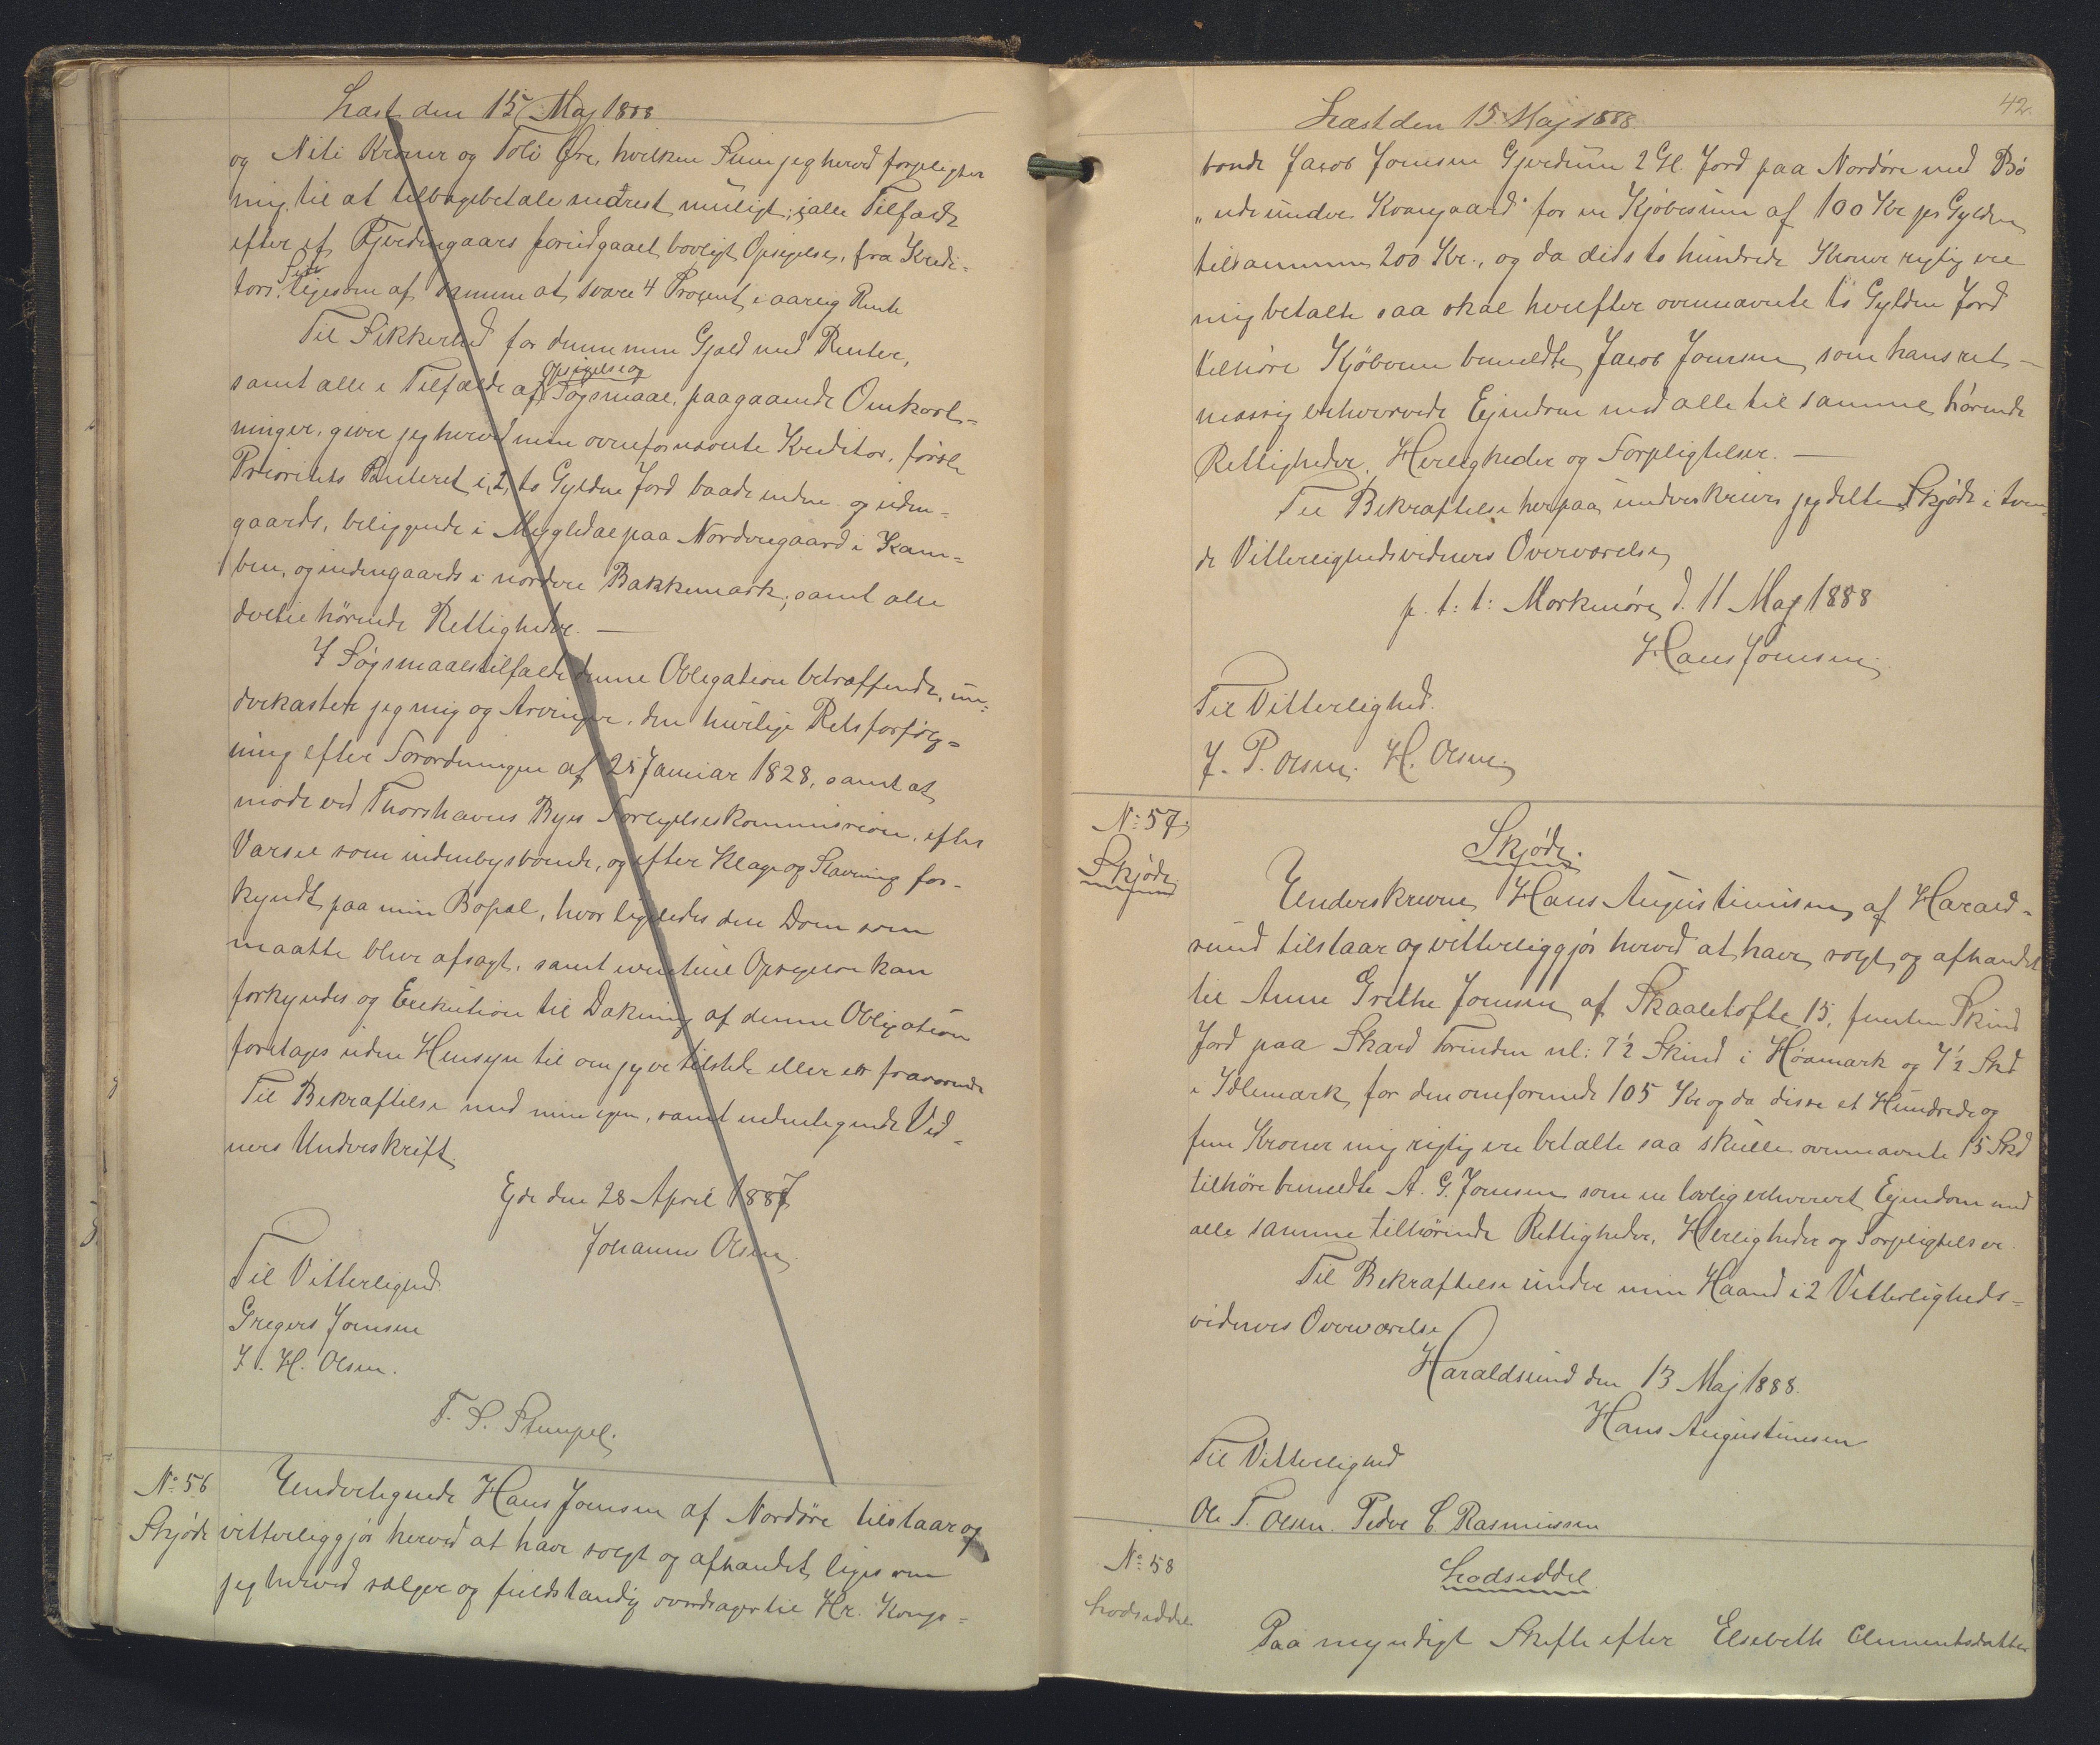 Læst den 15 Maj 1888
og Niti Kroner og Tolv Øre, hvilken Sum jeg herved forpligter
mig til at tilbagebetale snarest muligt; i alle Tilfælde
efter et Fjerdingaars forudgaaet lovligt Opsigelse, fra Kredi-
tors Side ligesom af samme at svare 4 Procent i aarlig Rente
Til Sikkerhed for denne min Gjæld med Renter,
samt alle i Tilfælde af Opsigelse og Søgsmaal, paagaaende Omkost-
ninger, giver jeg herved min ovenfornævnte Kreditor, første
Prioritets Panteret i, 2, to Gylden Jord baade inden og uden-
gaards, beliggende i Mygledal paa Nordregaard i Kam-
ben, og indengaards i nordere Bakkemark; samt alle
dertil hørende Rettigheder. —
I Søgsmaalstilfælde denne Obligation betræffende, un-
derkaster jeg mig og Arvinger, den hurtige Retsforfølg-
ning efter Forordningen af 25 Januar 1828, samt at
møde ved Thorshavns Byes Forligelseskommission, efter
Varsel som indenbysboende, og efter Klage og Stævning for-
kyndt paa min Bopæl, hvor ligeledes den Dom som
maatte blive afsagt, samt eventuel Opsigelse kan
forkyndes og Exekution til Dækning af denne Obligation
foretages uden Hensyn til om jeg er tilstede eller er fraværende
Til Bekræftelse med min egen, samt undertegnede Vid-
ners Underskrift.
Ejde den 28 April 1887
Johannes Olsen.
Til Vitterlighed.
Gregers Joensen
J. H. Olsen.
T. S. Stempel.
No. 56
Skjøde
Undertegnede Hans Joensen af Nordøre tilstaar og
vitterliggjør herved at have solgt og afhændet, ligesom
jeg herved sælger og fuldstændig overdrager til Hr. Konge-
42.
Læst den 15. Maj 1888.
bonde Jacob Joensen Gjerdum 2 Gl. Jord paa Nordøre med Bø
"ude under Kvangaard" for en Kjøbesum af 100 Kr pr Gylden
tilsammen 200 Kr., og da disse to hundrede Kroner rigtig ere
mig betalte saa skal herefter ovennævnte to Gylden Jord
tilhøre Kjøberen bemeldte Jacob Joensen som hans ret-
mæssig erhvervede Ejendom med alle til samme hørende
Rettigheder, Herligheder og Forpligtelser. —
Til Bekræftelse herpaa underskriver jeg dette Skjøde i tven-
de Vitterlighedsvidners Overværelse
p. t: t: Morkenøre d. 11 Maj 1888
Hans Joensen.
Til Vitterlighed.
J. P. Olsen. H. Olsen.
No. 57.
Skjøde
Skjøde.
Underskrevne Hans Augustinusen af Harald-
sund tilstaar og vitterliggjør herved at have solgt og afhændet
til Anne Grethe Joensen af Skaaletofte 15, femten Skind
Jord paa Skard Torinden nl: 7½ Skind i Høamark og 7½ Skd
i Idlemark for den omforenede 105 Kr og da disse et Hundrede og
fem Kroner mig rigtig ere betalte saa skulle ovennævnte 15 Skd
tilhøre bemeldte A. G. Joensen som en lovlig erhvervet Ejendom med
alle samme tilhørende Rettigheder, Herligheder og Forpligtelser.
Til Bekræftelse under min Haand i 2 Vitterligheds-
vidners Overværelse
Haraldsund den 13 Maj 1888.
Hans Augustinusen
Til Vitterlighed
Ole T. Olsen. Peder C Rasmussen
No. 58
Lodseddel
Lodseddel.
Paa myndigt Skifte efter Elsebeth Clementsdatter